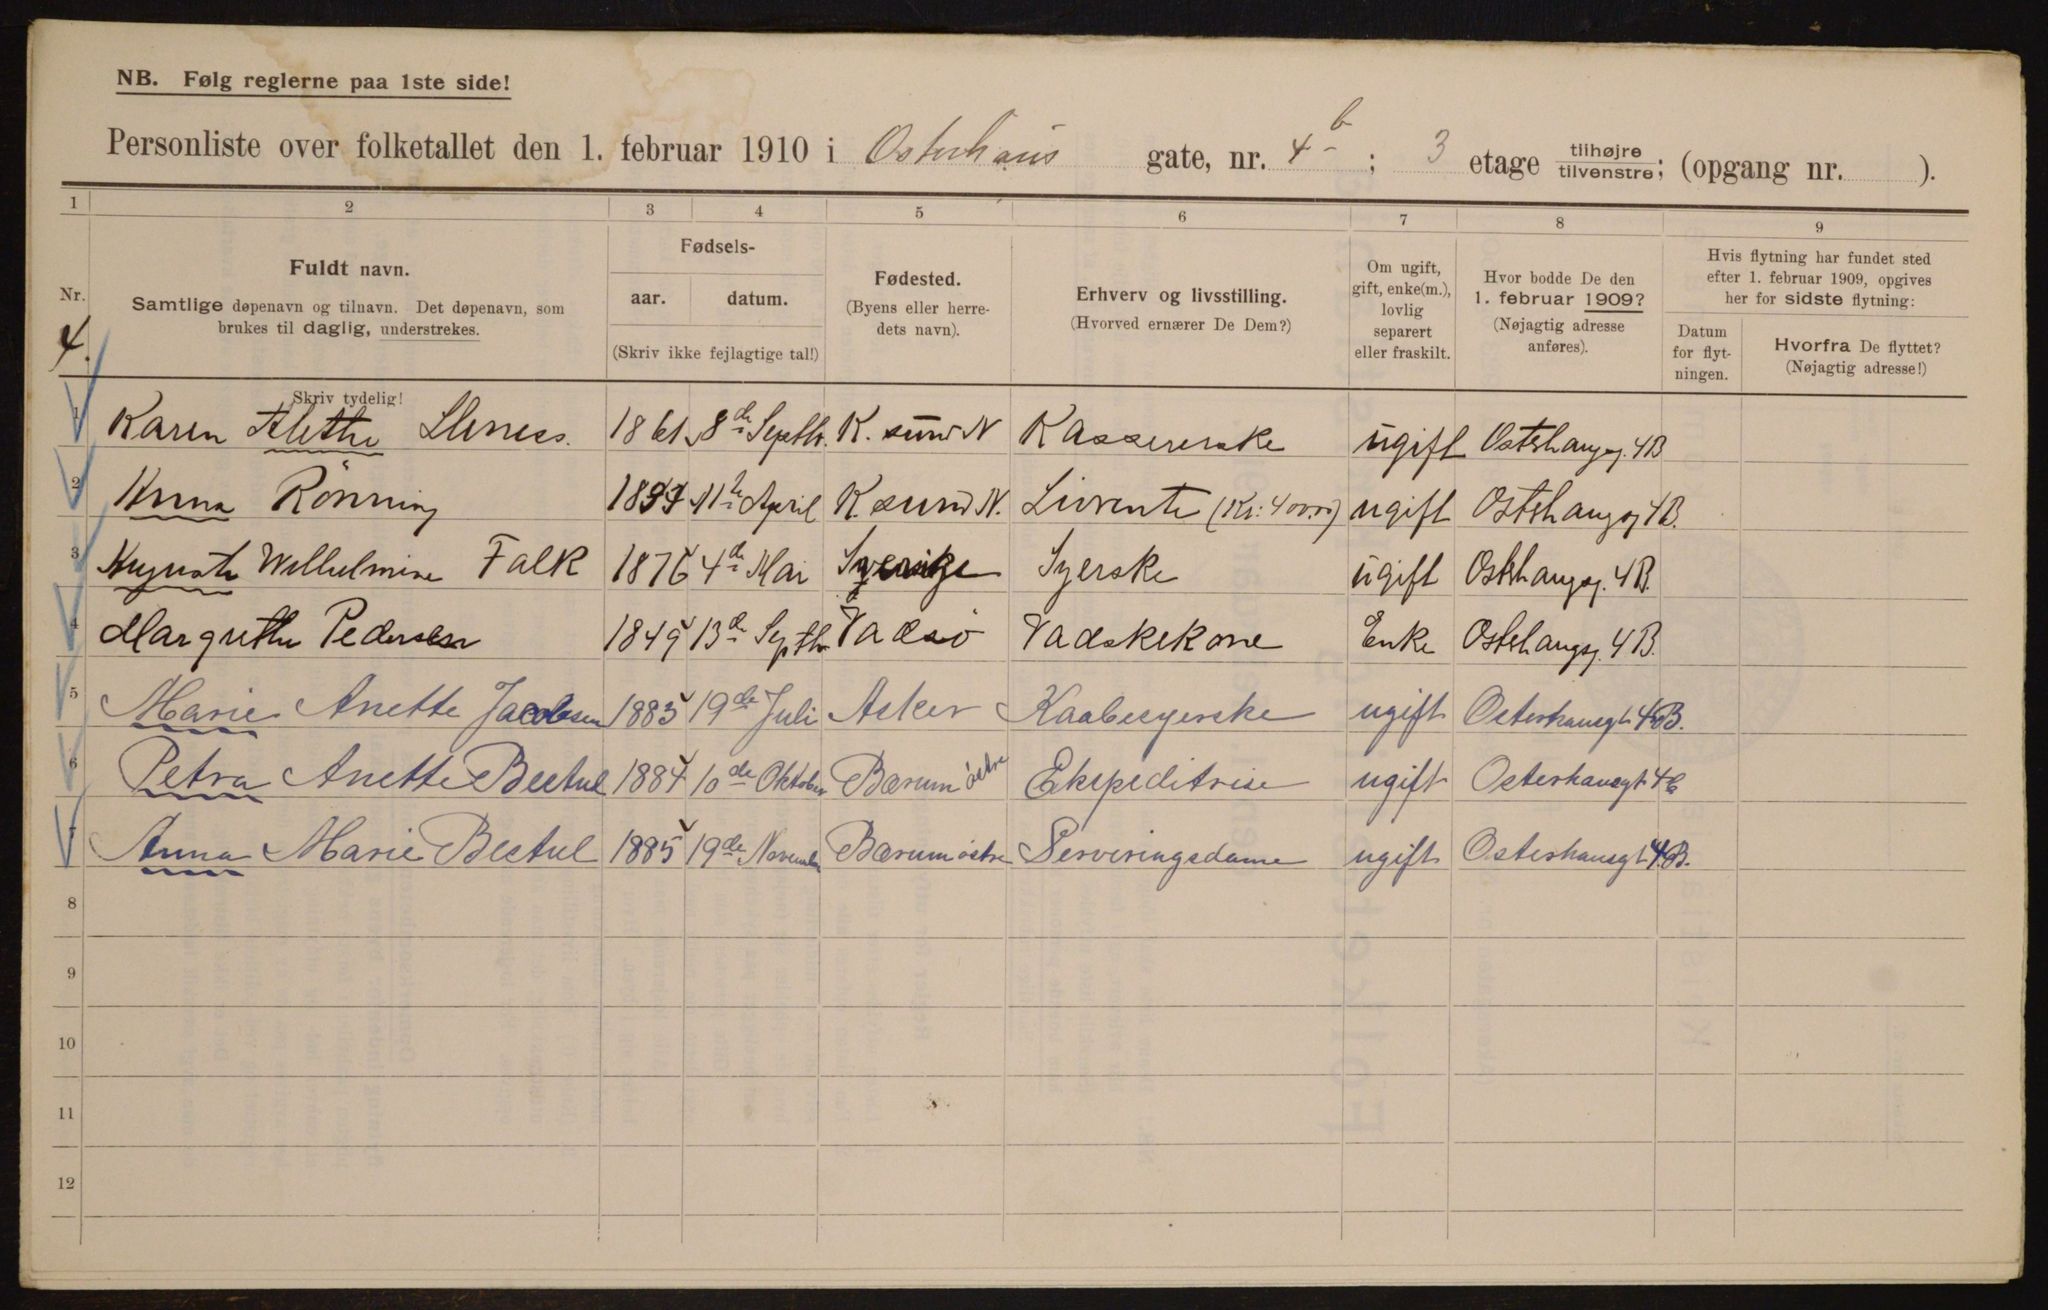 NB. Følg reglerne paa 1ste side!
Personliste over folketallet den 1. februar 1910 i Osterhaus gate, nr. 4 b ; 3 etage tilhøjre tilvenstre; (opgang nr. ).
1 2 3 4 5 6 7 8 9
Nr. 4.
Fuldt navn.
Samtlige døpenavn og tilnavn. Det døpenavn, som
brukes til daglig, understrekes.
Skriv tydelig!
Fødsels-
aar. datum.
(Skriv ikke fejlagtige tal!)
Fødested.
(Byens eller herre-
dets navn).
Erhverv og livsstilling.
(Hvorved ernærer De Dem?)
Om ugift,
gift, enke(m.),
lovlig
separert
eller fraskilt.
Hvor bodde De den
1. februar 1909?
(Nøjagtig adresse
anføres).
Hvis flytning har fundet sted
efter 1. februar 1909, opgives
her for sidste flytning:
Datum
for flyt-
ningen.
Hvorfra De flyttet?
(Nøjagtig adresse!)
1 Karen Alethe 1861 8de Septbr. K. sund N Kassererske ugift Osterhausg. 4B
2 Anna Rönning 11te April K. sund N. Livrente ugift Osterhausg 4B.
3 Auguste Wilhelmine Falk 1876 4de Mai Sverige Syerske ugift Osterhausg. 4B.
4 Margrethe Pedersen 1849 13de Septbr Vadsö Vadskekone Enke Osterhausg. 4B.
5 Marie Anette Jacobsen 1883 19de Juli Asker Kaabesyerske ugift Osterhausgt 4B.
6 Petra Anette Bectul 1884 10de Oktober Bærum östre Ekspeditrise ugift Osterhausgt 4B
7 Anna Marie Bectul 1885 19de November Bærum östre Serveringsdame ugift Osterhausgt 4B.
8
9
10
11
12